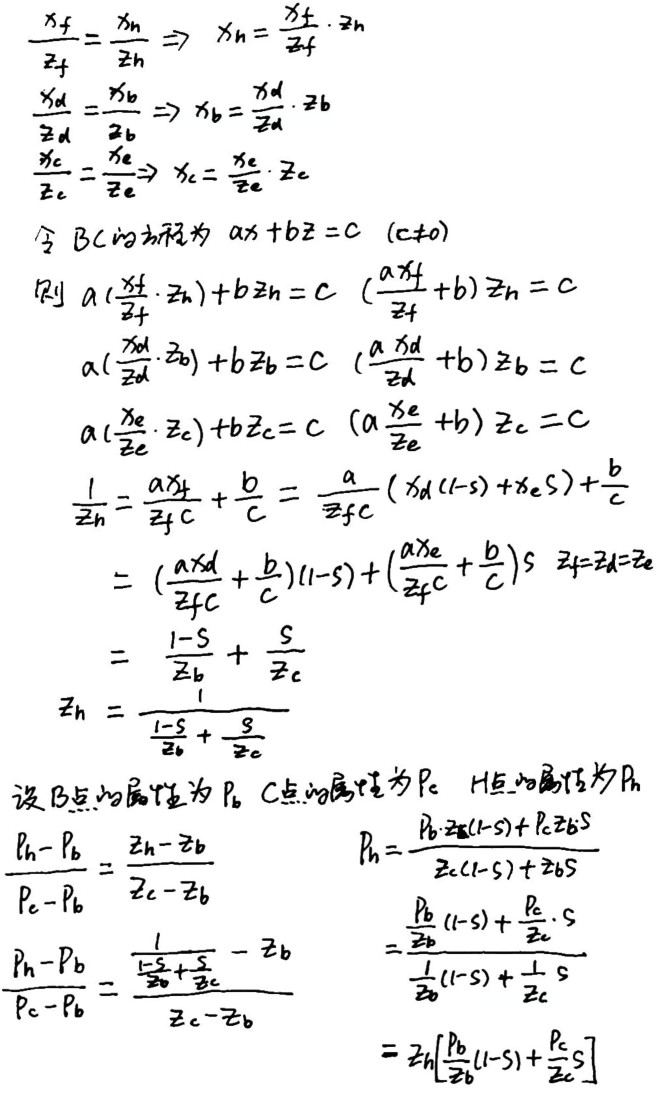 x_f/z_f = x_h/z_h ⇒ x_h = x_f/z_f · z_h
x_d/z_d = x_b/z_b ⇒ x_b = x_d/z_d · z_b
x_c/z_c = x_e/z_e ⇒ x_c = x_e/z_e · z_c
令 BC的方程为 ax + bz = c (c≠0)
则 a(x_f/z_f · z_h) + bz_h = c (ax_f/z_f + b) z_h = c
a(x_d/z_d · z_b) + bz_b = c (ax_d/z_d + b) z_b = c
a(x_e/z_e · z_c) + bz_c = c (a x_e/z_e + b) z_c = c
1/z_h = ax_f/(z_f c) + b/c = a/(z_f c) (x_d(1-s) + x_e s) + b/c
= (ax_d/(z_f c) + b/c)(1-s) + (ax_e/(z_f c) + b/c)s z_f = z_d = z_e
= (1-s)/z_b + s/z_c
z_h = 1/((1-s)/z_b + s/z_c)
设B点的属性为 P_b C点的属性为 P_c H点的属性为 P_h
(P_h - P_b)/(P_c - P_b) = (z_h - z_b)/(z_c - z_b)
(P_h - P_b)/(P_c - P_b) = (1/((1-s)/z_b + s/z_c) - z_b)/(z_c - z_b)
P_h = (P_b·z_c(1-s) + P_c z_b·s)/(z_c(1-s) + z_b s)
= (P_b/z_b (1-s) + P_c/z_c · s)/(1/z_b (1-s) + 1/z_c s)
= z_h[P_b/z_b (1-s) + P_c/z_c s]